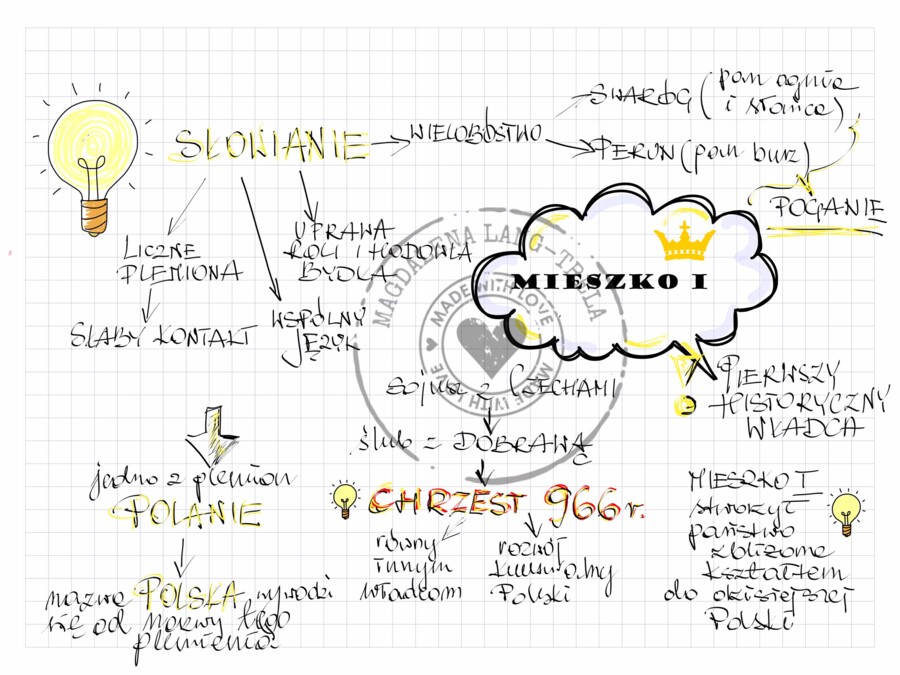 SŁOWIANIE
WIELOBÓSTWO
SWARÓG (pan ognia
i słońca)
PERUN (pan burz)
POGANIE
LICZNE
PLEMIONA
SŁABY KONTAKT
WSPÓLNY
JĘZYK
UPRAWA
ROLI I HODOWLA
BYDŁA
MIESZKO I
PIERWSZY
HISTORYCZNY
WŁADCA
sojusz z CZECHAMI
ślub z DOBRAWĄ
CHRZEST 966 r.
równy
innym
władcom
rozwój
kulturalny
Polski
jedno z plemion
POLANIE
nazwa POLSKA wywodzi
się od nazwy tego
plemienia
MIESZKO I
stworzył
państwo
zbliżone
kształtem
do dzisiejszej
Polski
MAGDALENA LANG-TRELA
MADE WITH LOVE
MADE WITH LOVE